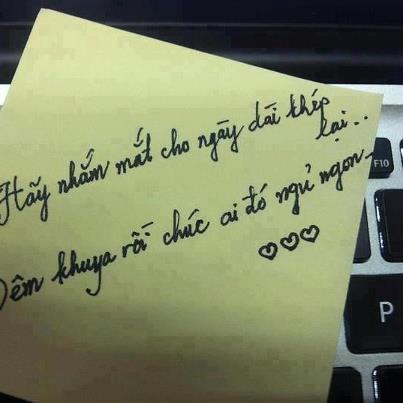 Hãy nhắm mắt cho ngày dài khép
lại..
Đêm khuya rồi chúc ai đó ngủ ngon
F10
P